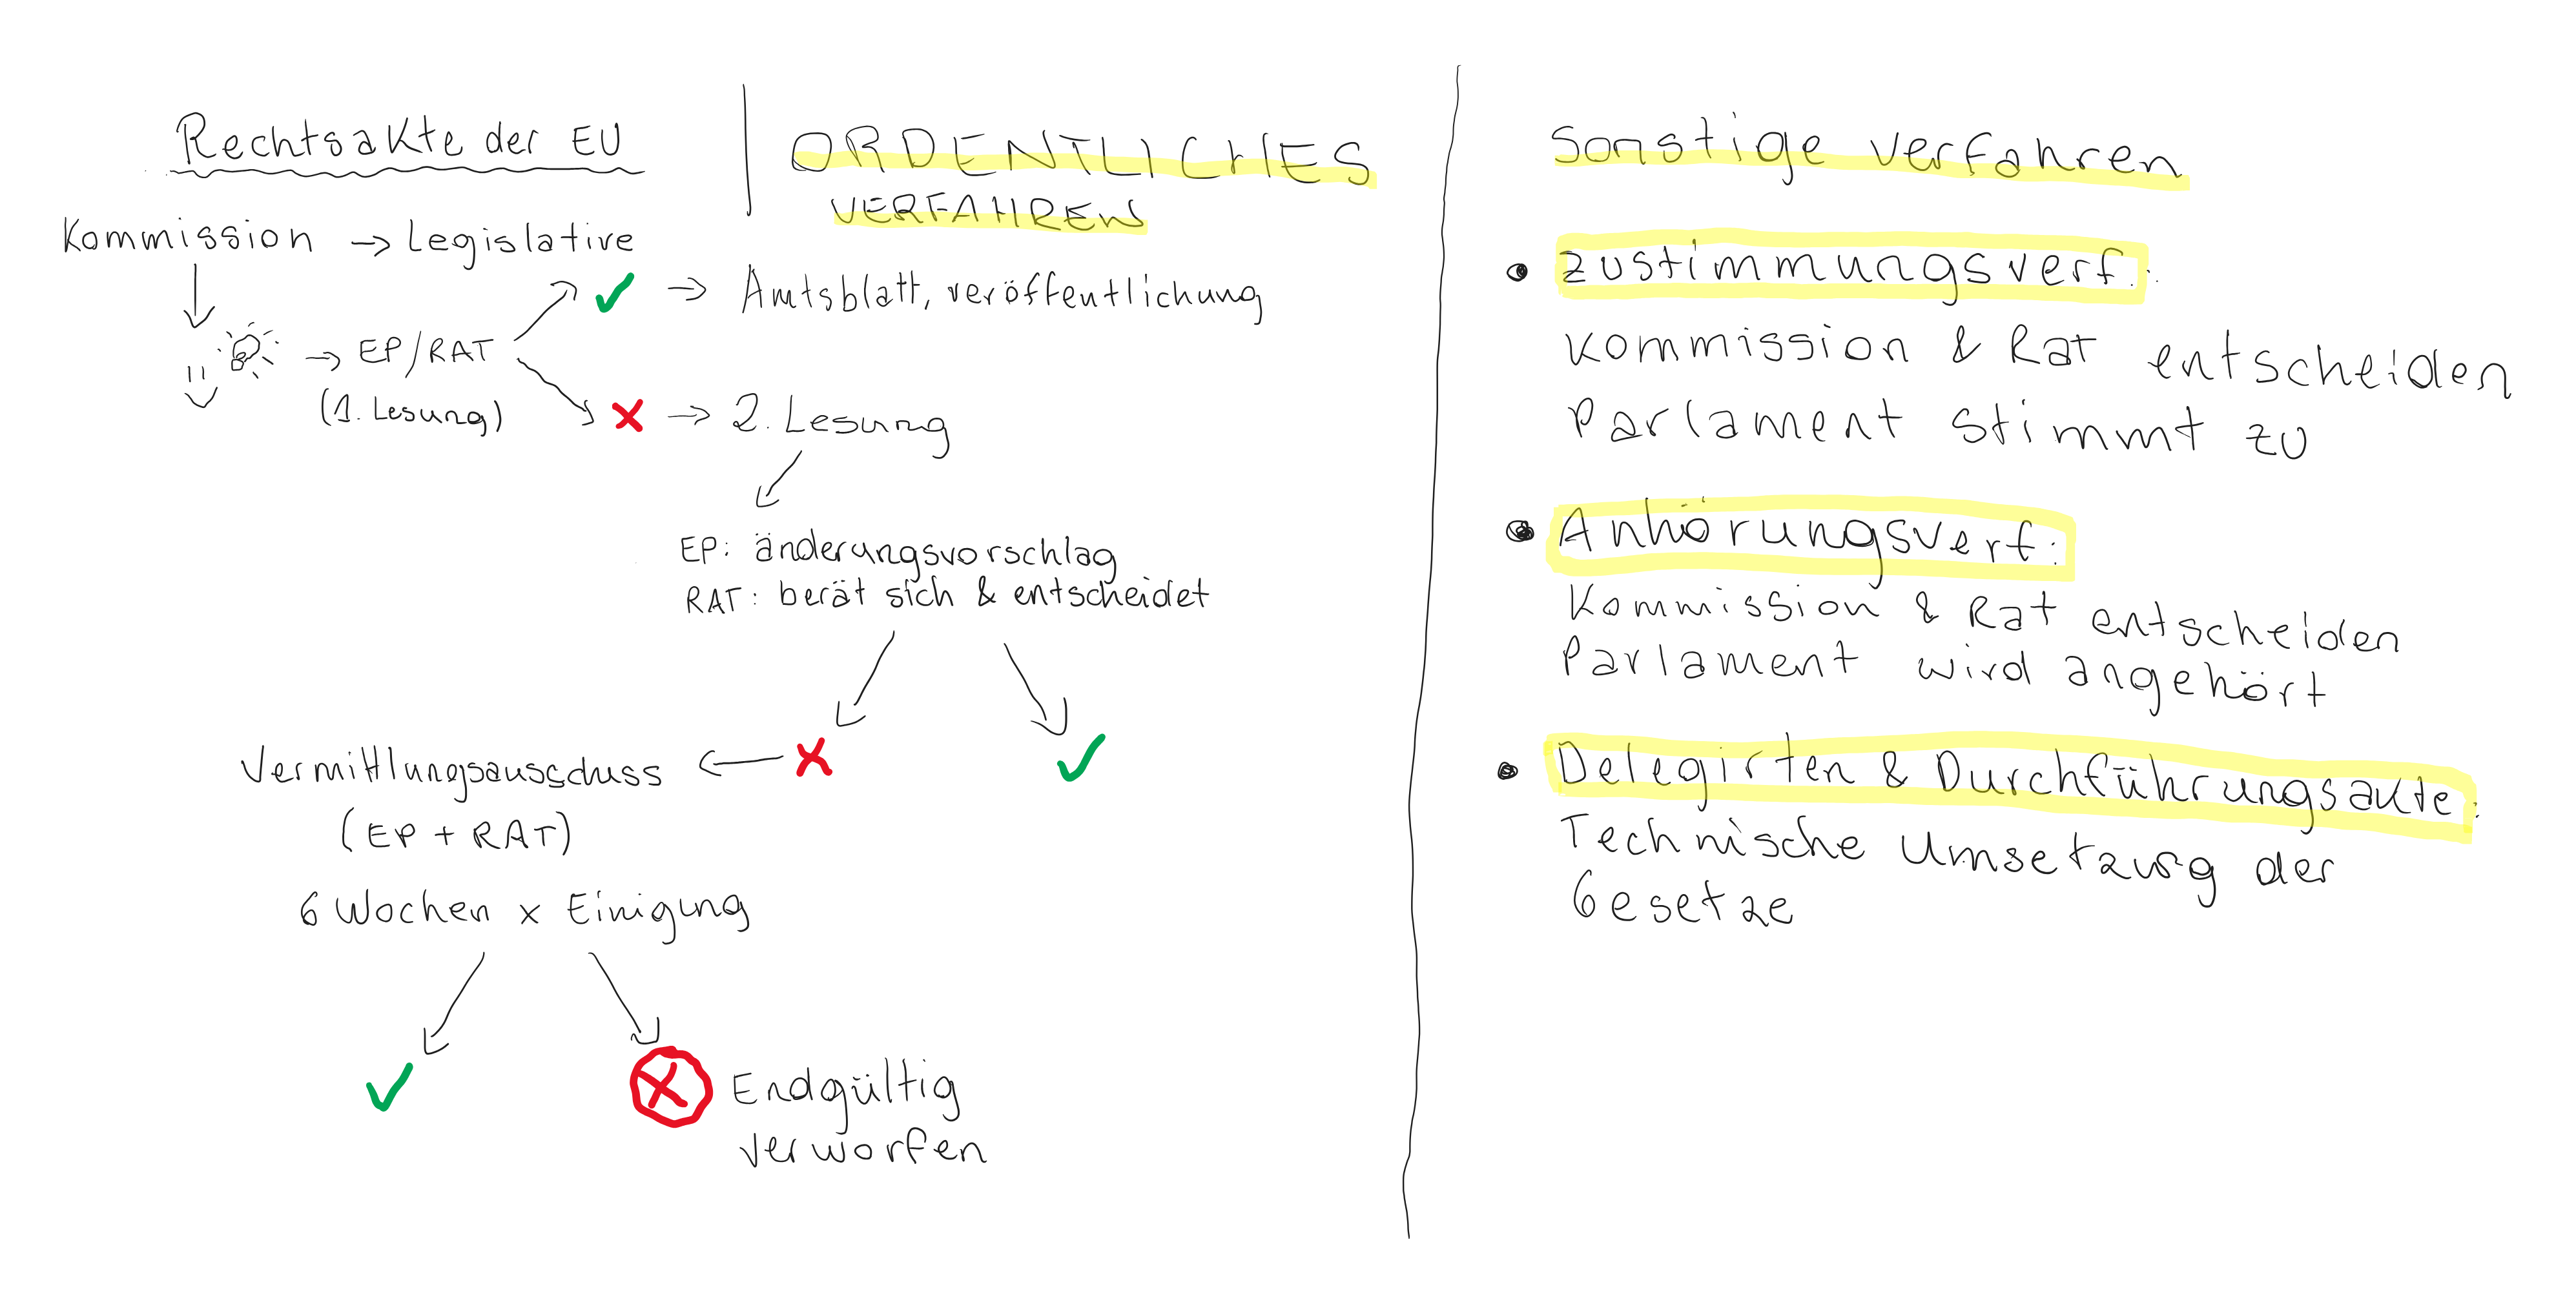 Rechtsakte der EU
ORDENTLICHES
VERFAHREN
Kommission → Legislative
✓ → Amtsblatt, veröffentlichung
→ EP/RAT
(1. Lesung)
x → 2. Lesung
EP: änderungsvorschlag
RAT: berät sich & entscheidet
Vermittlungsausschuss
(EP + RAT)
6 Wochen x Einigung
Endgültig
verworfen
Sonstige verfahren
• Zustimmungsverf.:
Kommission & Rat entscheiden
Parlament stimmt zu
• Anhörungsverf.:
Kommission & Rat entscheiden
Parlament wird angehört
• Delegirten & Durchführungsakte:
Technische Umsetzung der
Gesetze